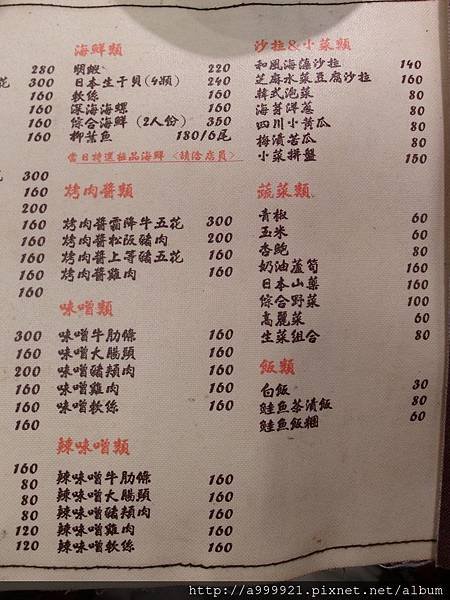 海鮮類
280 明蝦 220
花 300 日本生干貝(4顆) 240
160 軟絲 160
160 深海海螺 160
160 綜合海鮮 (2人份) 350
160 柳葉魚 180/6尾
當日特選極品海鮮 <請洽店員>
300
160 烤肉醬類
200
160 烤肉醬霜降牛五花 300
160 烤肉醬松阪豬肉 200
160 烤肉醬上等豬五花 160
160 烤肉醬雞肉 160
160
味噌類
300 味噌牛肋條 160
160 味噌大腸頭 160
200 味噌豬頰肉 160
160 味噌雞肉 160
160 味噌軟絲 160
160
辣味噌類
160
80 辣味噌牛肋條 160
80 辣味噌大腸頭 160
80 辣味噌豬頰肉 160
120 辣味噌雞肉 160
120 辣味噌軟絲 160
沙拉&小菜類
和風海藻沙拉 140
芝麻水菜豆腐沙拉 160
韓式泡菜 80
海苔洋蔥 80
四川小黃瓜 80
梅漬苦瓜 80
小菜拼盤 150
蔬菜類
青椒 60
玉米 60
杏鮑 80
奶油蘆筍 160
日本山藥 160
綜合野菜 100
高麗菜 60
生菜組合 80
飯類
白飯 30
鮭魚茶漬飯 80
鮭魚飯糰 60
http://a999921.pixnet.net/album